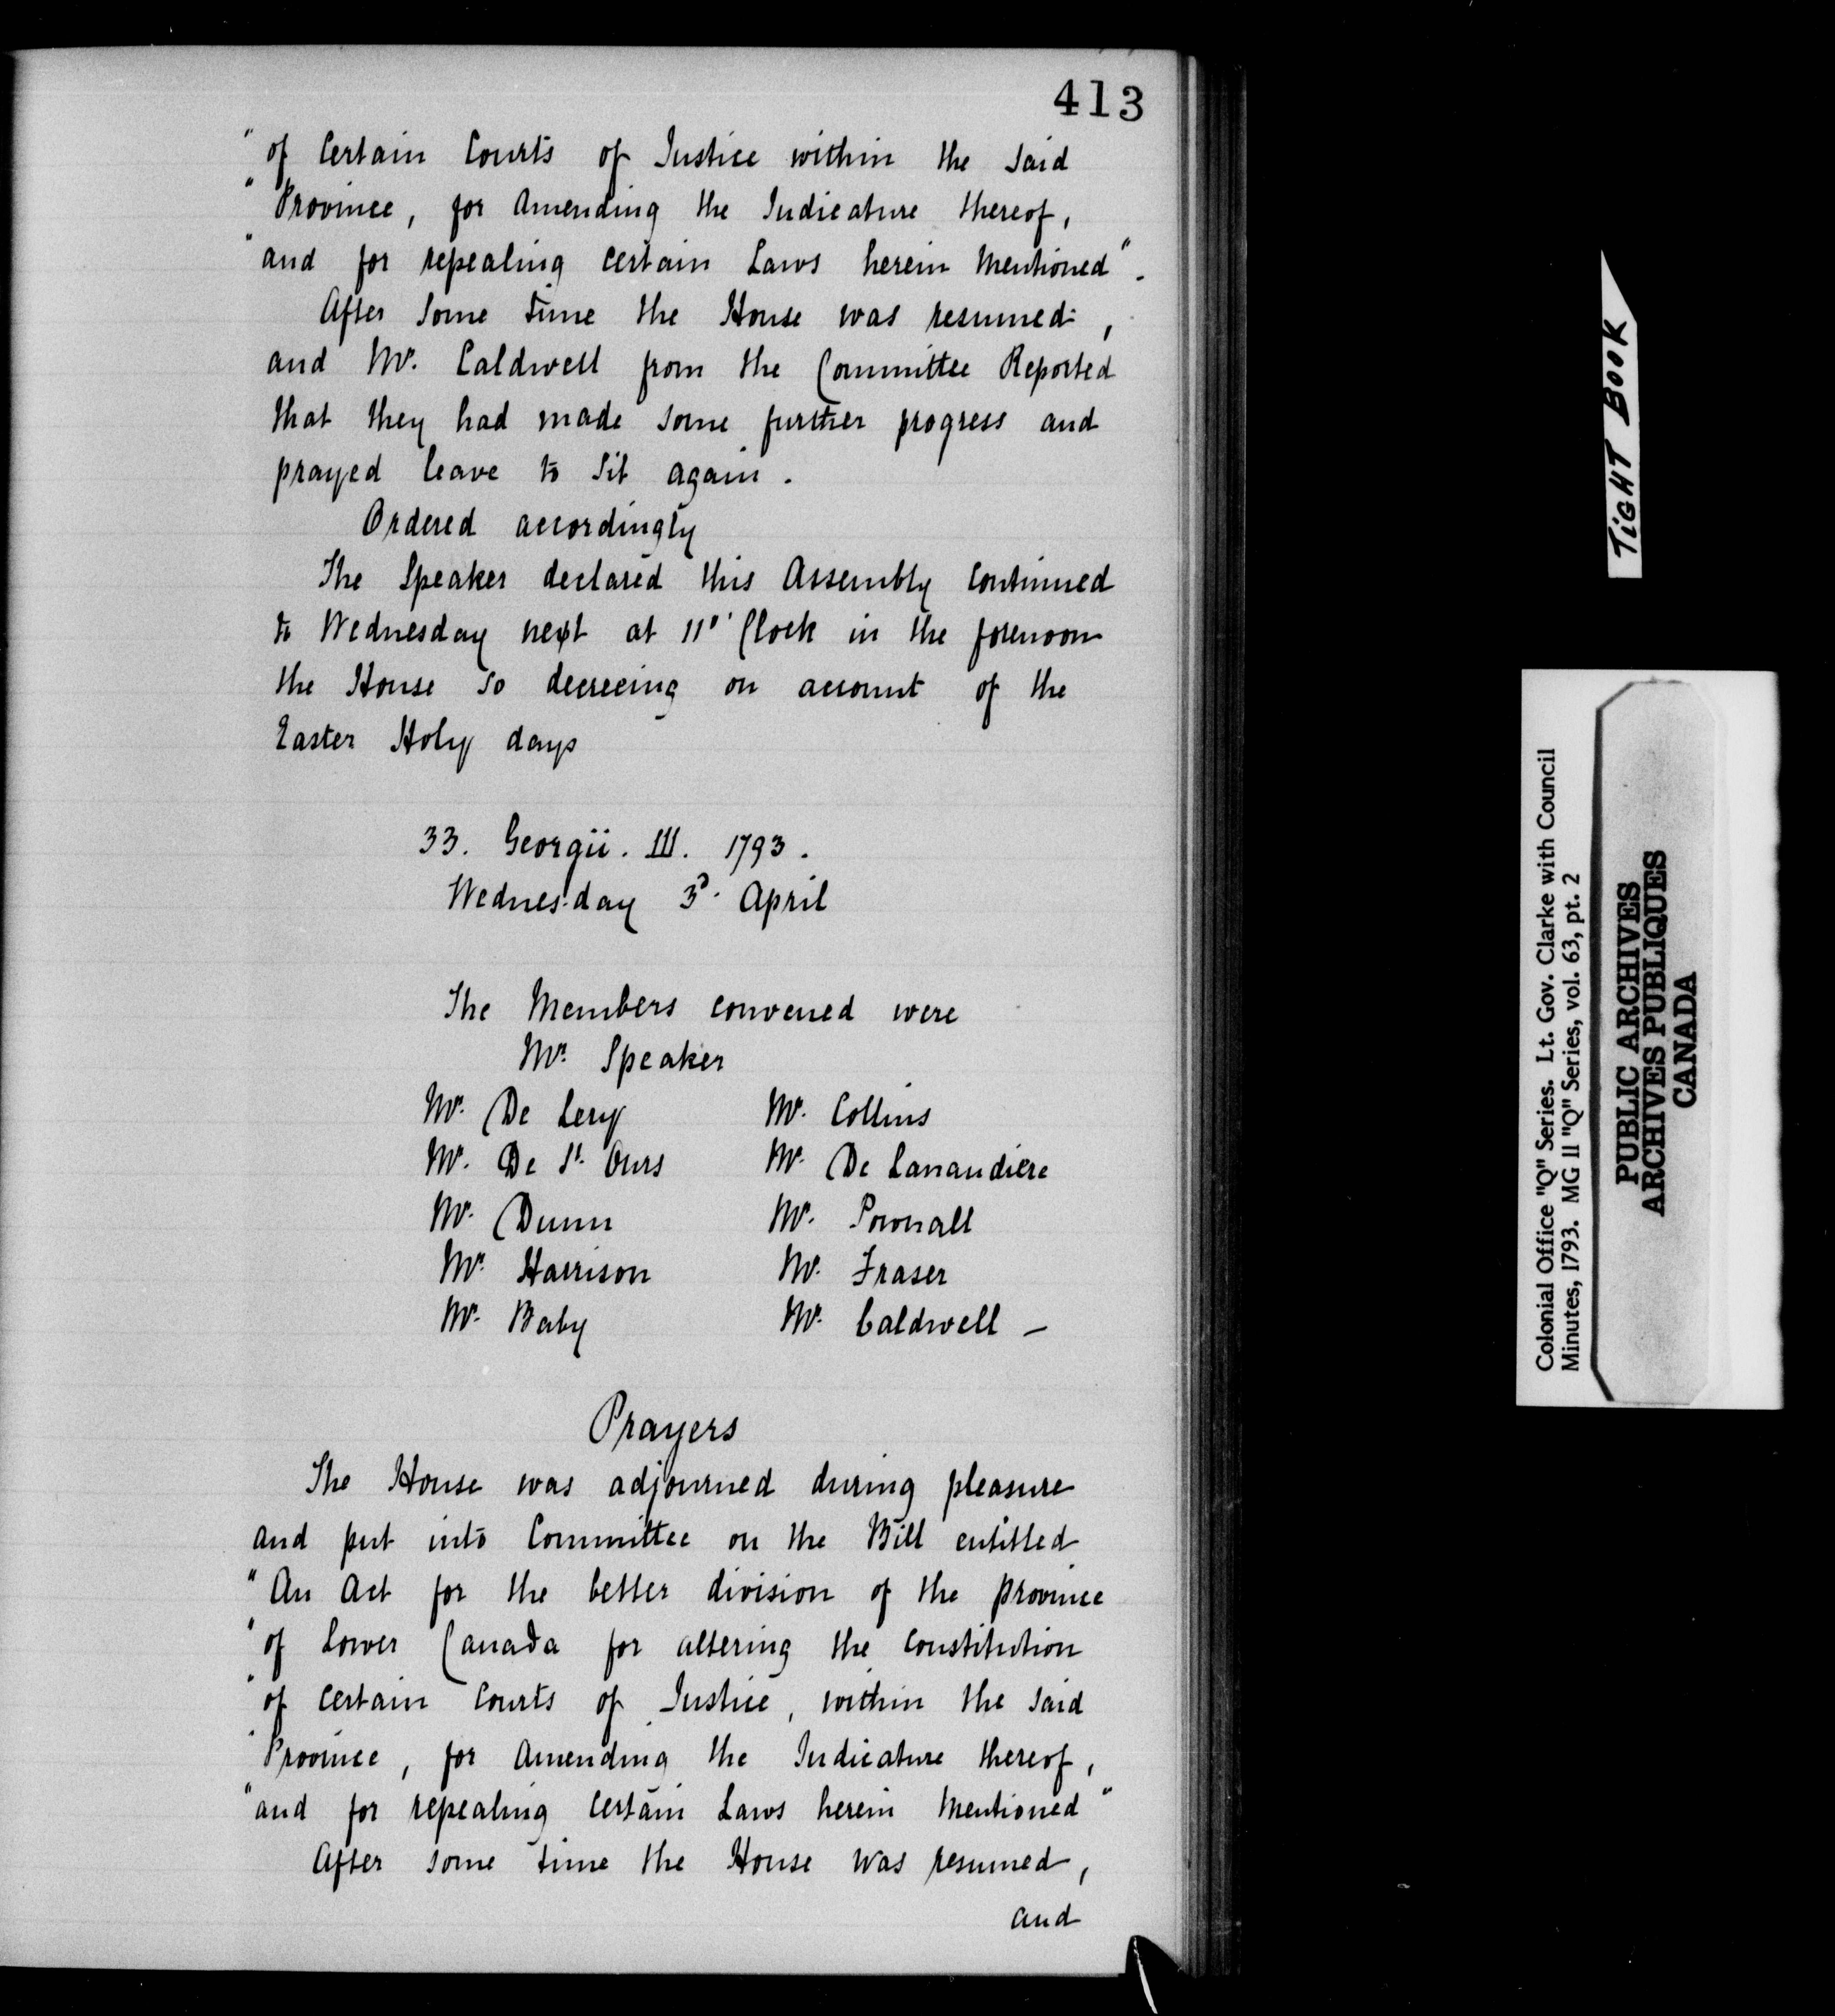 413
"of Certain Courts of Justice within the said
"Province, for Amending the Judicature thereof,
"and for repealing certain Laws herein Mentioned".
After some time the House was resumed,
and Mr. Caldwell from the Committee Reported
that they had made some further progress and
prayed leave to sit again.
Ordered accordingly
The Speaker declared this Assembly continued
to Wednesday next at 11 o'Clock in the forenoon
the House so decreeing on account of the
Easter Holy days
33. Georgii. III. 1793.
Wednesday 3d. April
The Members convened were
Mr. Speaker
Mr. De Lery Mr. Collins
Mr. De St. Ours Mr. De Lanaudiere
Mr. Dunn Mr. Pownall
Mr. Harrison Mr. Fraser
Mr. Baby Mr. Caldwell –
Prayers
The House was adjourned during pleasure
and put into Committee on the Bill entitled
"An Act for the better division of the province
"of Lower Canada for altering the constitution
"of certain Courts of Justice, within the said
"Province, for Amending the Judicature thereof,
"and for repealing certain Laws herein Mentioned"
After some time the House was resumed,
and
TIGHT BOOK
Colonial Office "Q" Series. Lt. Gov. Clarke with Council
Minutes, 1793. MG 11 "Q" Series, vol. 63, pt. 2
PUBLIC ARCHIVES
ARCHIVES PUBLIQUES
CANADA